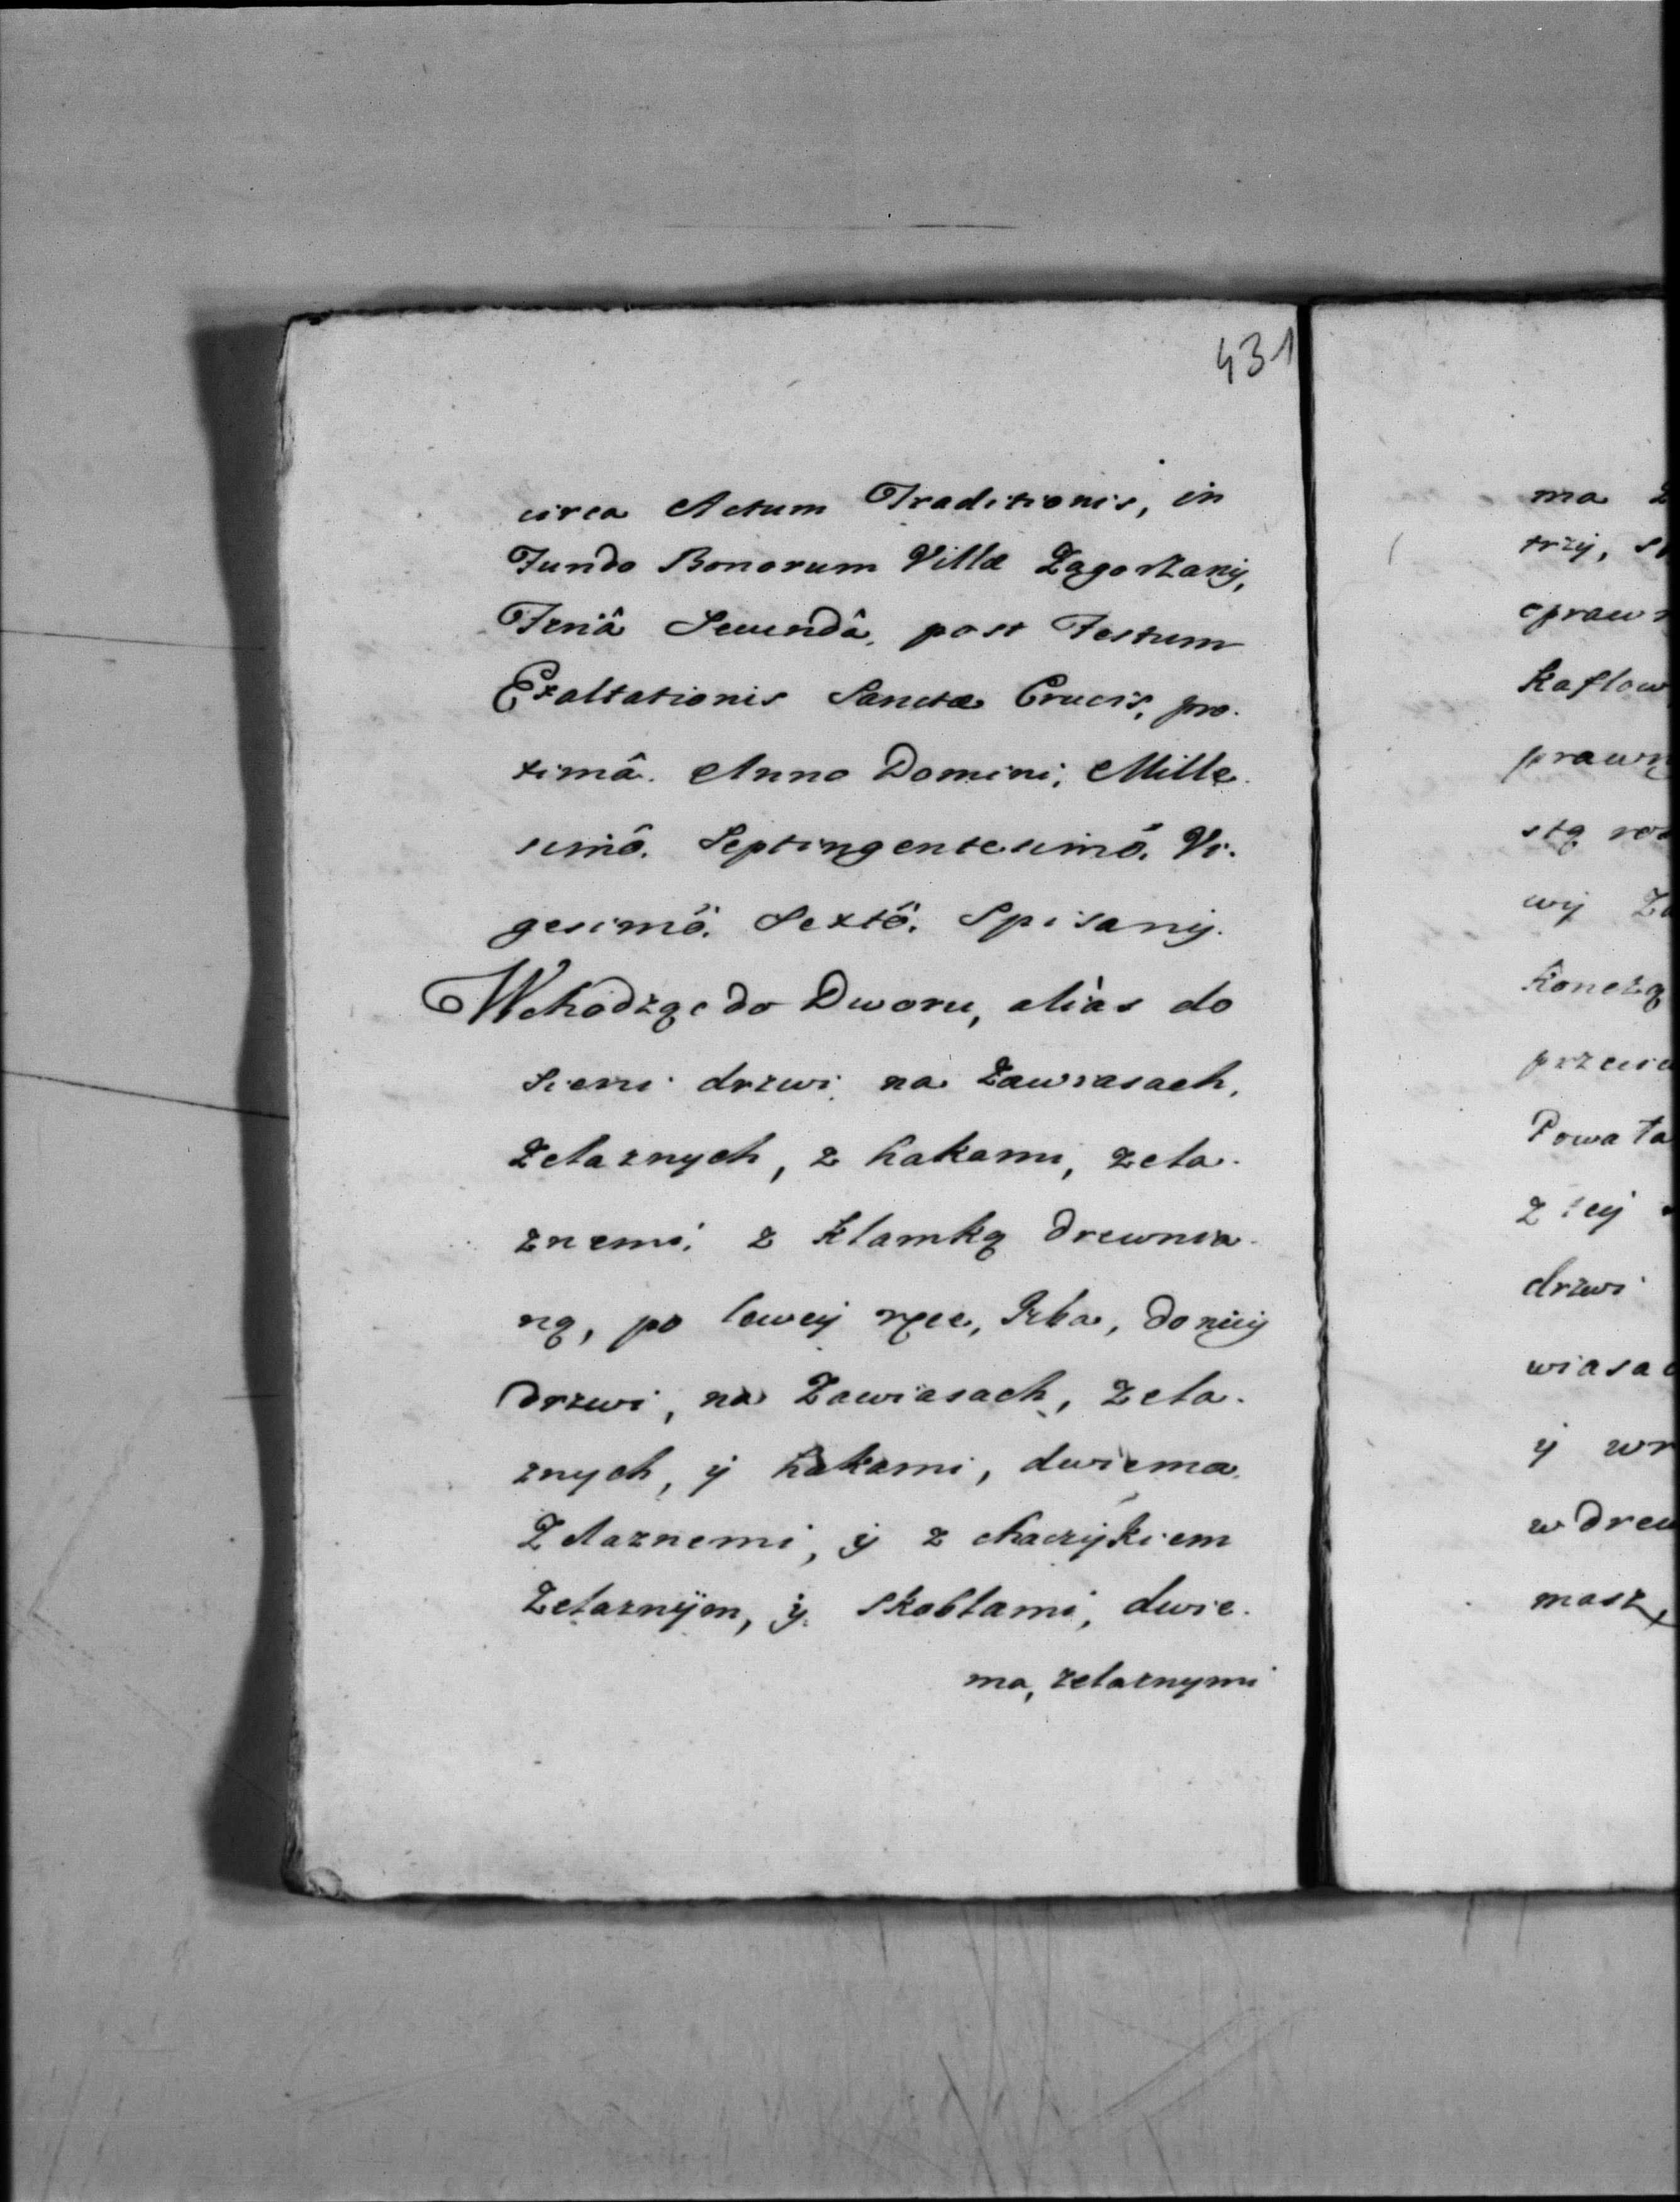 431
circa Actum Traditionis, in
Fundo Bonorum Villæ Zagorzany,
Feriâ Secundâ, post Festum
Exaltationis Sanctæ Crucis, pro-
ximâ. Anno Domini, Mille-
simô. Septingentesimô. Vi-
gesimô. Sextô. Spisany.
Wchodząc do Dworu, alias do
Sieni drzwi na Zawiasach,
Zelaznych, z hakami, zela-
znemi, z Klamką drewnia-
ną, po lewey ręce, Izba, do niey
drzwi, na Zawiasach, Zela-
znych, ÿ hakami, dwiema
Zelaznemi, ÿ z chaczÿkiem
Zelaznÿm, ÿ Skoblami, dwie-
ma, zelaznymi
ma
trzÿ,
opraw
Kaflow
prawn
stą
wÿ
Konczą
Powała
z teÿ
drzwi
wiasa
ÿ
w drew
masz,